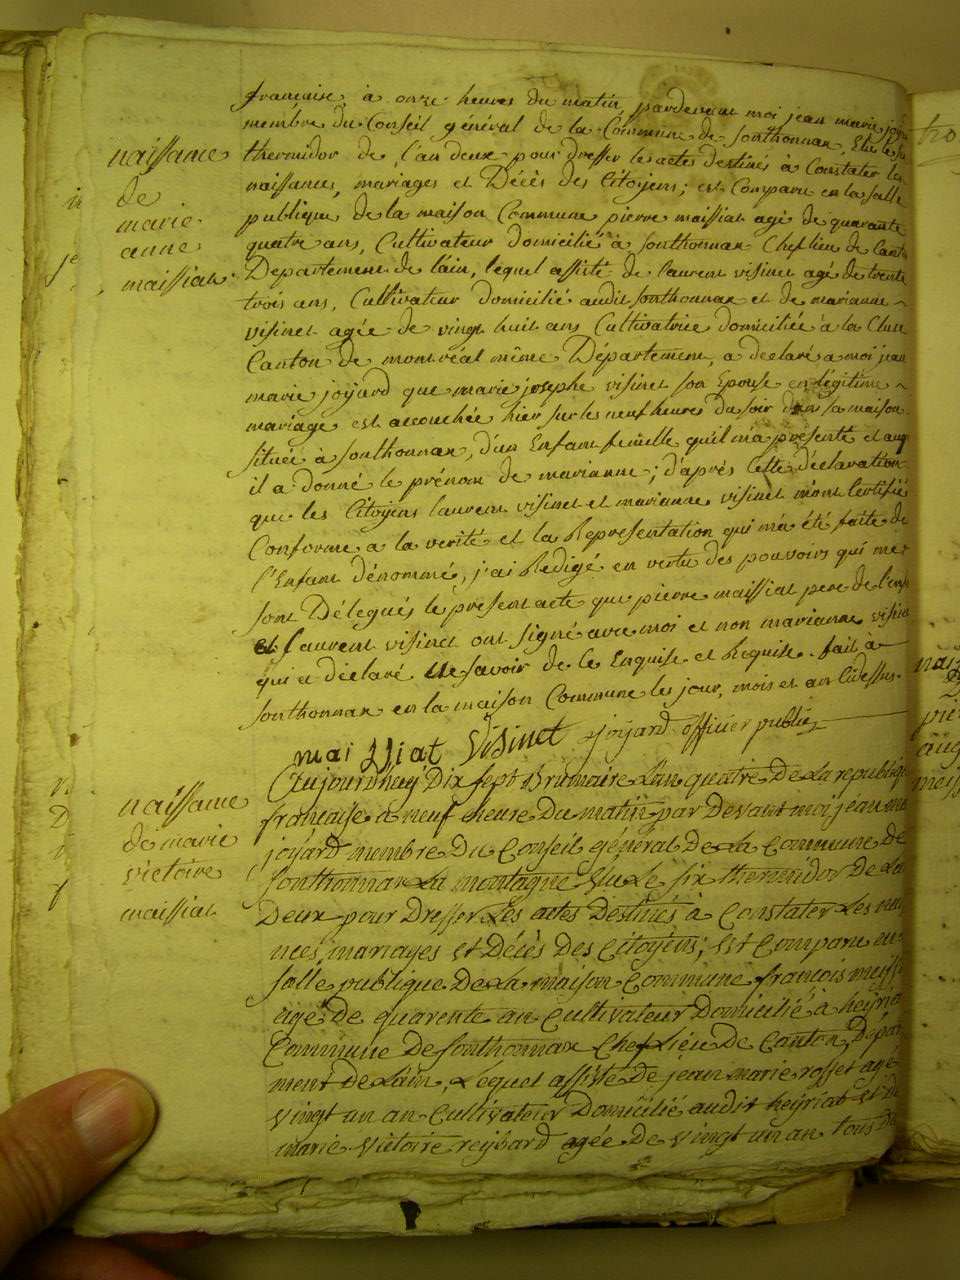 française, à onze heures du matin, pardevant moi jean marie joyard
membre du Conseil général de la Commune de Sonthonnax, Elu le six
thermidor de l'an deux pour dresser les actes destinés à Constater les
naissances, mariages et Décès des Citoyens; est Comparu en la salle
publique de la maison Commune pierre maissiat agé de quarante
quatre ans, Cultivateur domicilié à Sonthonnax Chef lieu de Canton
Departement de l'ain, lequel assisté de laurent visinet agé de trente
trois ans, Cultivateur domicilié audit Sonthonnax et de marianne
visinet agée de vingt huit ans Cultivatrice domiciliée à la Cluse
Canton de montréal même Département, a declaré a moi jean
marie joyard que marie josephe visinet son Epouse en légitime
mariage est accouchée hier sur les neuf heures du soir dans sa maison
située à Sonthonnax, d'un Enfant femelle qu'il m'a présenté et auq
il a donné le prénom de marianne; d'après Cette déclaration
que les Citoyens laurent visinet et marianne visinet m'ont Certifié
Conforme a la verité et la Représentation qui m'a été faite de
l'Enfant dénommé, j'ai Redigé en vertu des pouvoirs qui me
sont Délégués le present acte que pierre maissiat pere de l'enf
et laurent visinet ont signé avec moi et non marianne visinet
qui a déclaré ne savoir de Ce Enquise et Requise. fait à
Sonthonnax en la maison Commune les jour, mois et an Cidessus.
mai ssiat Visinet joyard officier public
naissance
de
marie
anne
maissiat
Aujourdhuy Dix sept Brumaire Lan quatre de La republiq
française à neuf heure Du matin par Devant moi jean ma
joyard membre Du Conseil général De La Commune De
Sonthonnax La montagne Elu Le six thermidor De La
Deux pour Dresser Les actes Destinés à Constater Les nai
nces, mariages et Décès Des Citoyens; Est Comparu en
salle publique De La maison Commune françois meissi
agé De quarente an Cultivateur Domicilié à heyria
Commune De Sonthonnax Chef Lieu De Canton, Dépar
ment De Lain, Lequel assisté De jean marie rosset agé
vingt un an Cultivateur Domicilié audit heyriat et De
marie victoire reybard agée De vingt un an tous De
naissance
de marie
victoire
maissiat